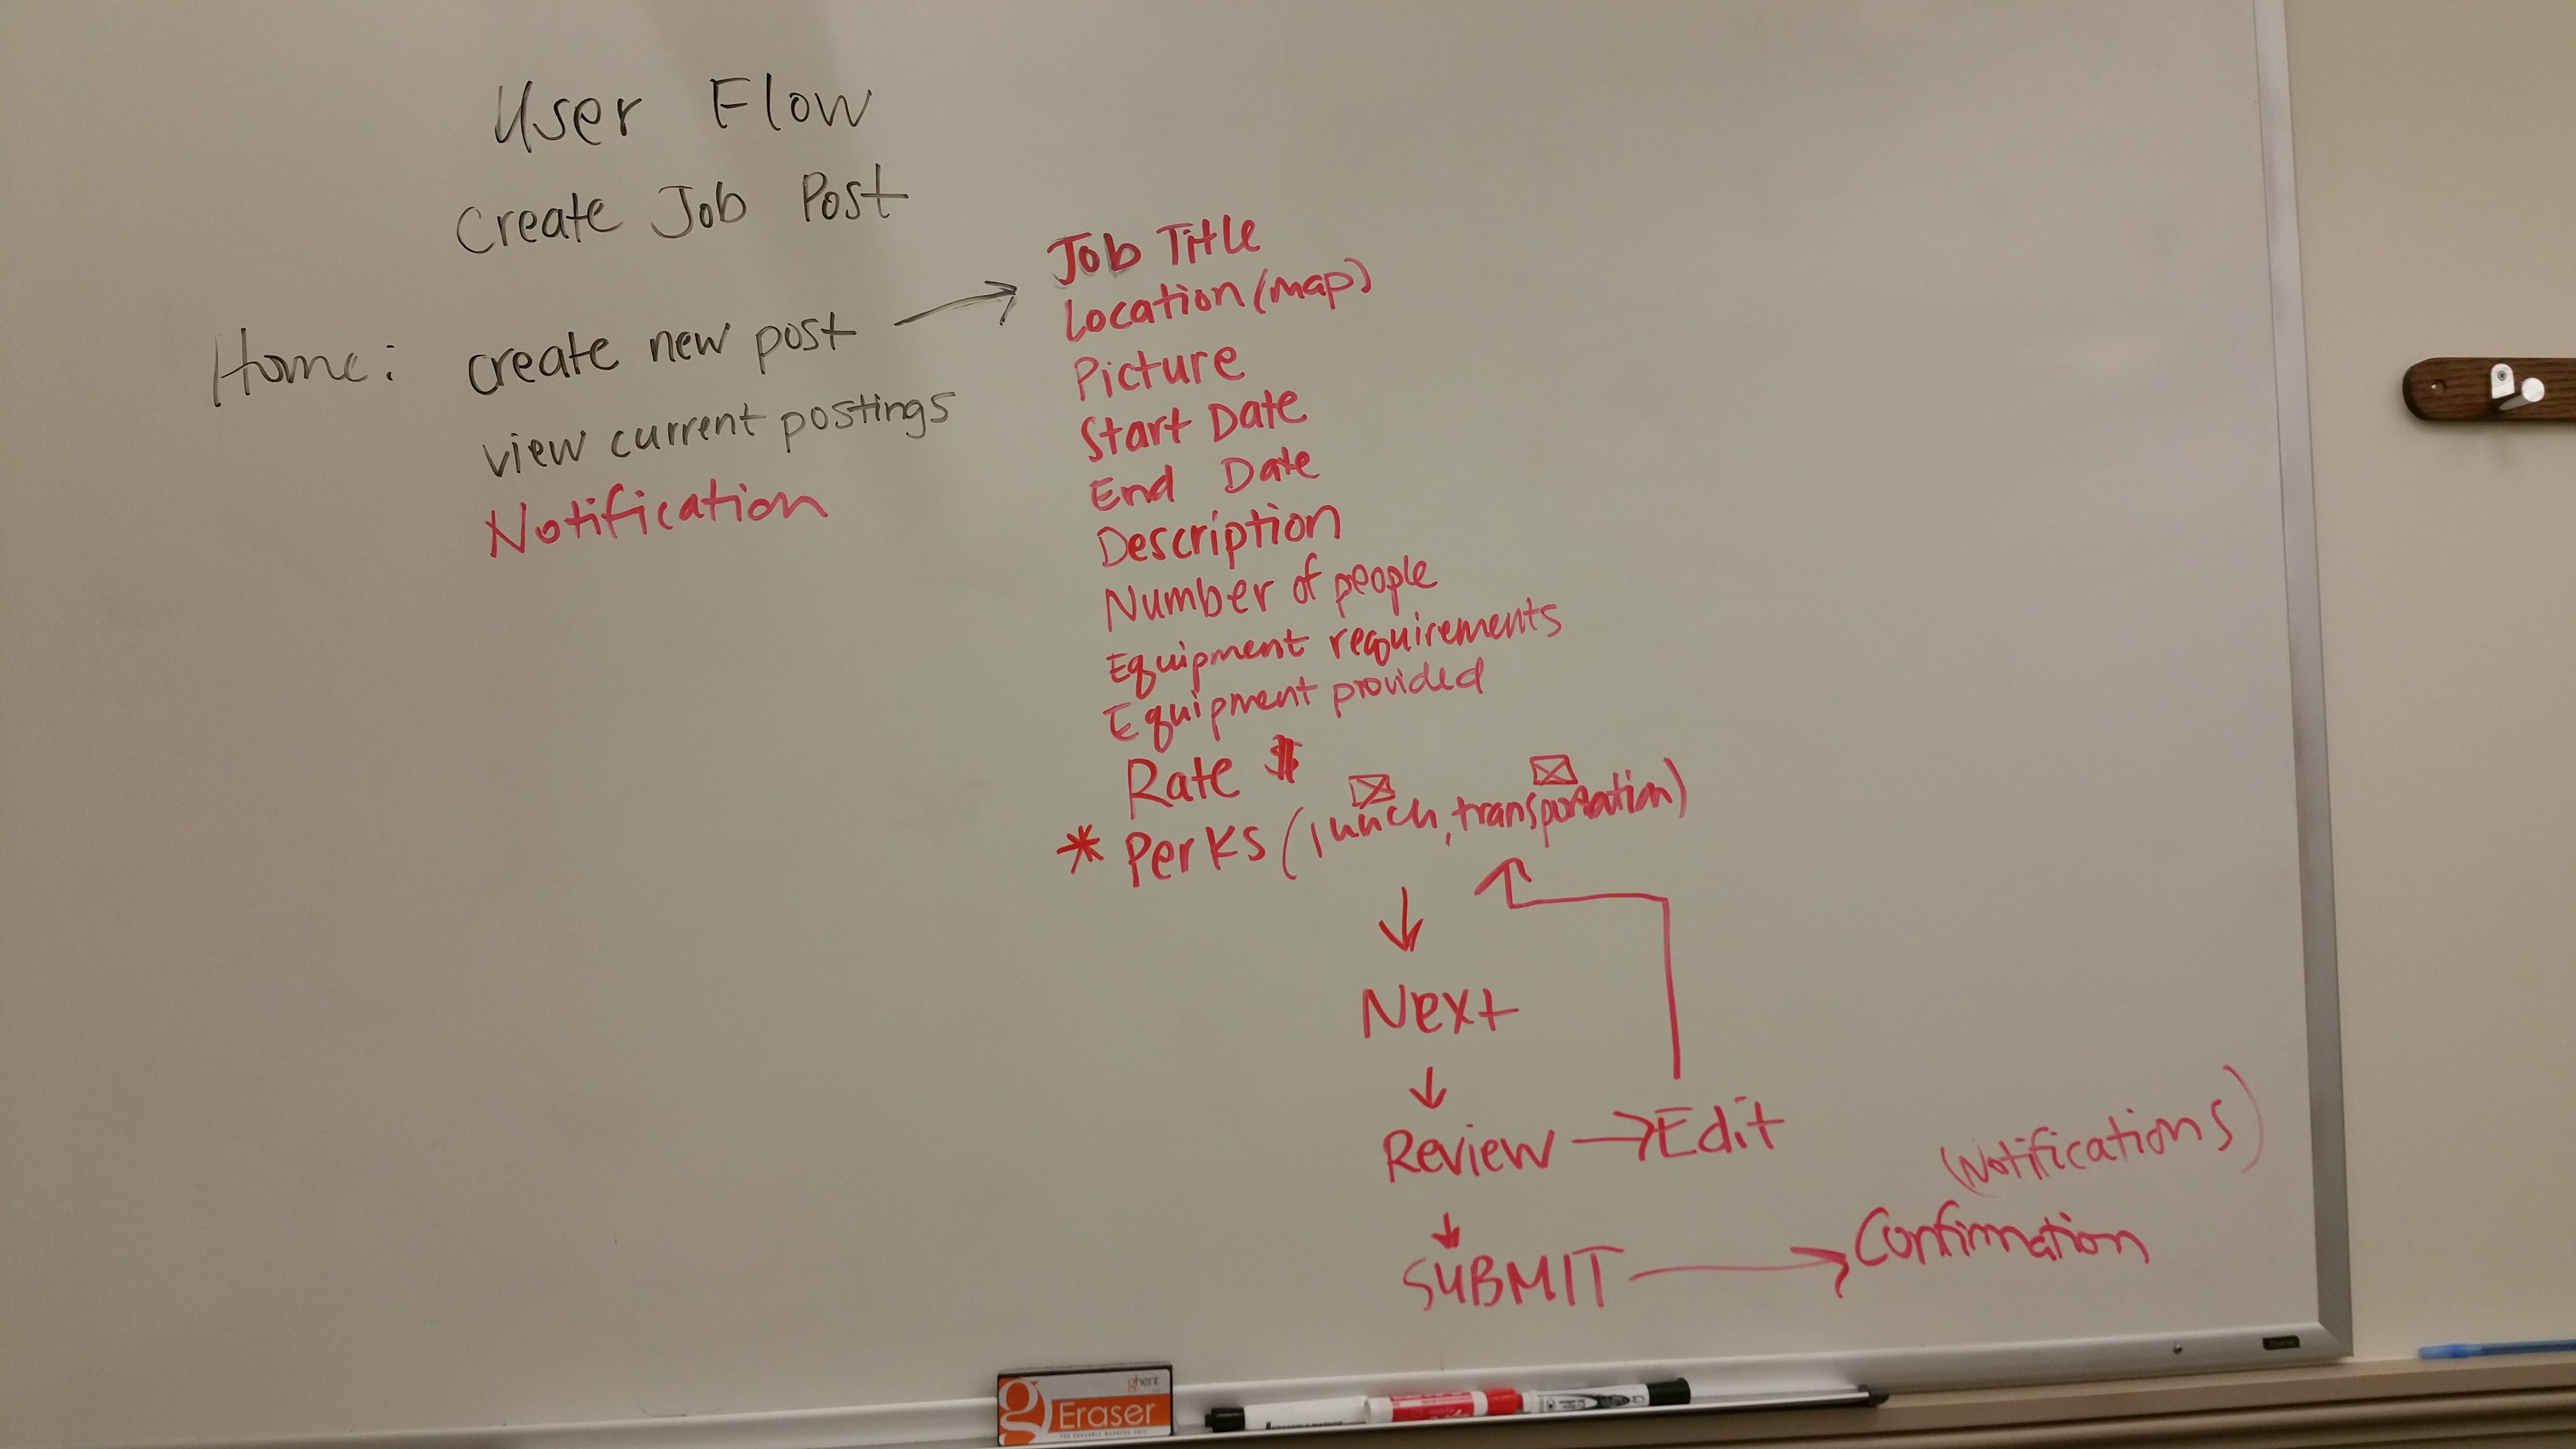 User Flow
Create Job Post
Home: create new post
view current postings
Notification
Job Title
Location (map)
Picture
Start Date
End Date
Description
Number of people
Equipment requirements
Equipment provided
Rate $
* Perks (lunch, transportation)
Next
Review → Edit
SUBMIT → Confirmation
(Notifications)
ghent
g Eraser